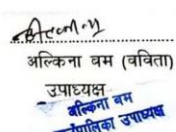 अल्किना बम (वविता)
उपाध्यक्ष
अल्किना बम
उपाध्यक्ष